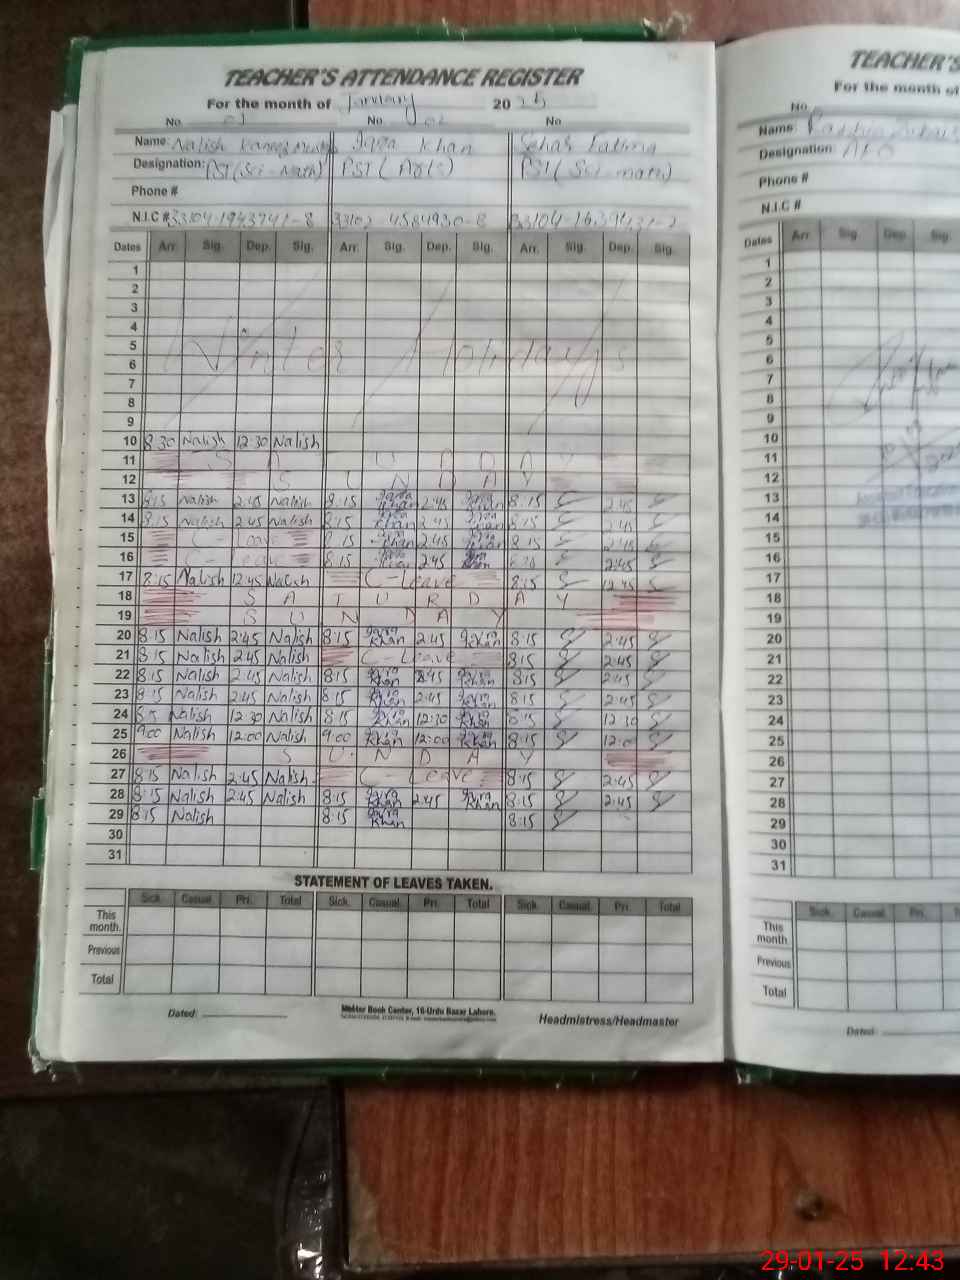 TEACHER'S ATTENDANCE REGISTER
For the month of January 2025
No. 01 No. 02 No
Name: Nalish Iqra Khan Sehar Fatima
Designation: PST (Sci-Math) PST (Arts) PST (Sci-math)
Phone #
N.I.C # 33104-1943741-8 33102-4584930-8 33104-1639431-2
Dates Arr. Sig. Dep. Sig. Arr. Sig. Dep. Sig. Arr. Sig. Dep. Sig.
1
2
3
4
5
6 Winter Holidays
7
8
9
10 8:30 Nalish 12:30 Nalish
11 S A U R D A Y
12 S U N D A Y
13 8:15 Nalish 2:45 Nalish 8:15 Iqra Khan 2:45 Iqra Khan 8:15 2:45
14 8:15 Nalish 2:45 Nalish 8:15 Iqra Khan 2:45 Iqra Khan 8:15 2:45
15 C-Leave 8:15 Iqra Khan 2:45 Iqra Khan 8:15 2:45
16 C-Leave 8:15 Iqra Khan 2:45 Iqra Khan 2:45
17 8:15 Nalish 12:45 Nalish C-Leave 8:15 12:45
18 S A T U R D A Y
19 S U N D A Y
20 8:15 Nalish 2:45 Nalish 8:15 Iqra Khan 2:45 Iqra Khan 8:15 2:45
21 8:15 Nalish 2:45 Nalish C-Leave 8:15 2:45
22 8:15 Nalish 2:45 Nalish 8:15 Iqra Khan 2:45 Iqra Khan 8:15 2:45
23 8:15 Nalish 2:45 Nalish 8:15 Iqra Khan 2:45 Iqra Khan 8:15 2:45
24 Nalish 12:30 Nalish 8:15 Iqra Khan 12:30 Iqra Khan 8:15 12:30
25 9:00 Nalish 12:00 Nalish 9:00 Iqra Khan 12:00 Iqra Khan 8:15 12:00
26 S U N D A Y
27 8:15 Nalish 2:45 Nalish C-Leave 8:15 2:45
28 8:15 Nalish 2:45 Nalish 8:15 Iqra Khan 2:45 Iqra Khan 8:15 2:45
29 8:15 Nalish 8:15 Iqra Khan 8:15
30
31
STATEMENT OF LEAVES TAKEN.
Sick. Casual. Pri. Total Sick. Casual. Pri. Total Sick. Casual. Pri. Total
This month.
Previous
Total
Dated:
Master Book Center, 16-Urdu Bazar Lahore.
Headmistress/Headmaster
TEACHER'S
For the month of
No.
Name:
Designation: AEO
Phone #
N.I.C #
Dates Arr. Sig. Dep. Sig.
1
2
3
4
5
6
7
8
9
10
11
12
13
14
15
16
17
18
19
20
21
22
23
24
25
26
27
28
29
30
31
Sick. Casual. Pri.
This month
Previous
Total
Dated:
29-01-25 12:43